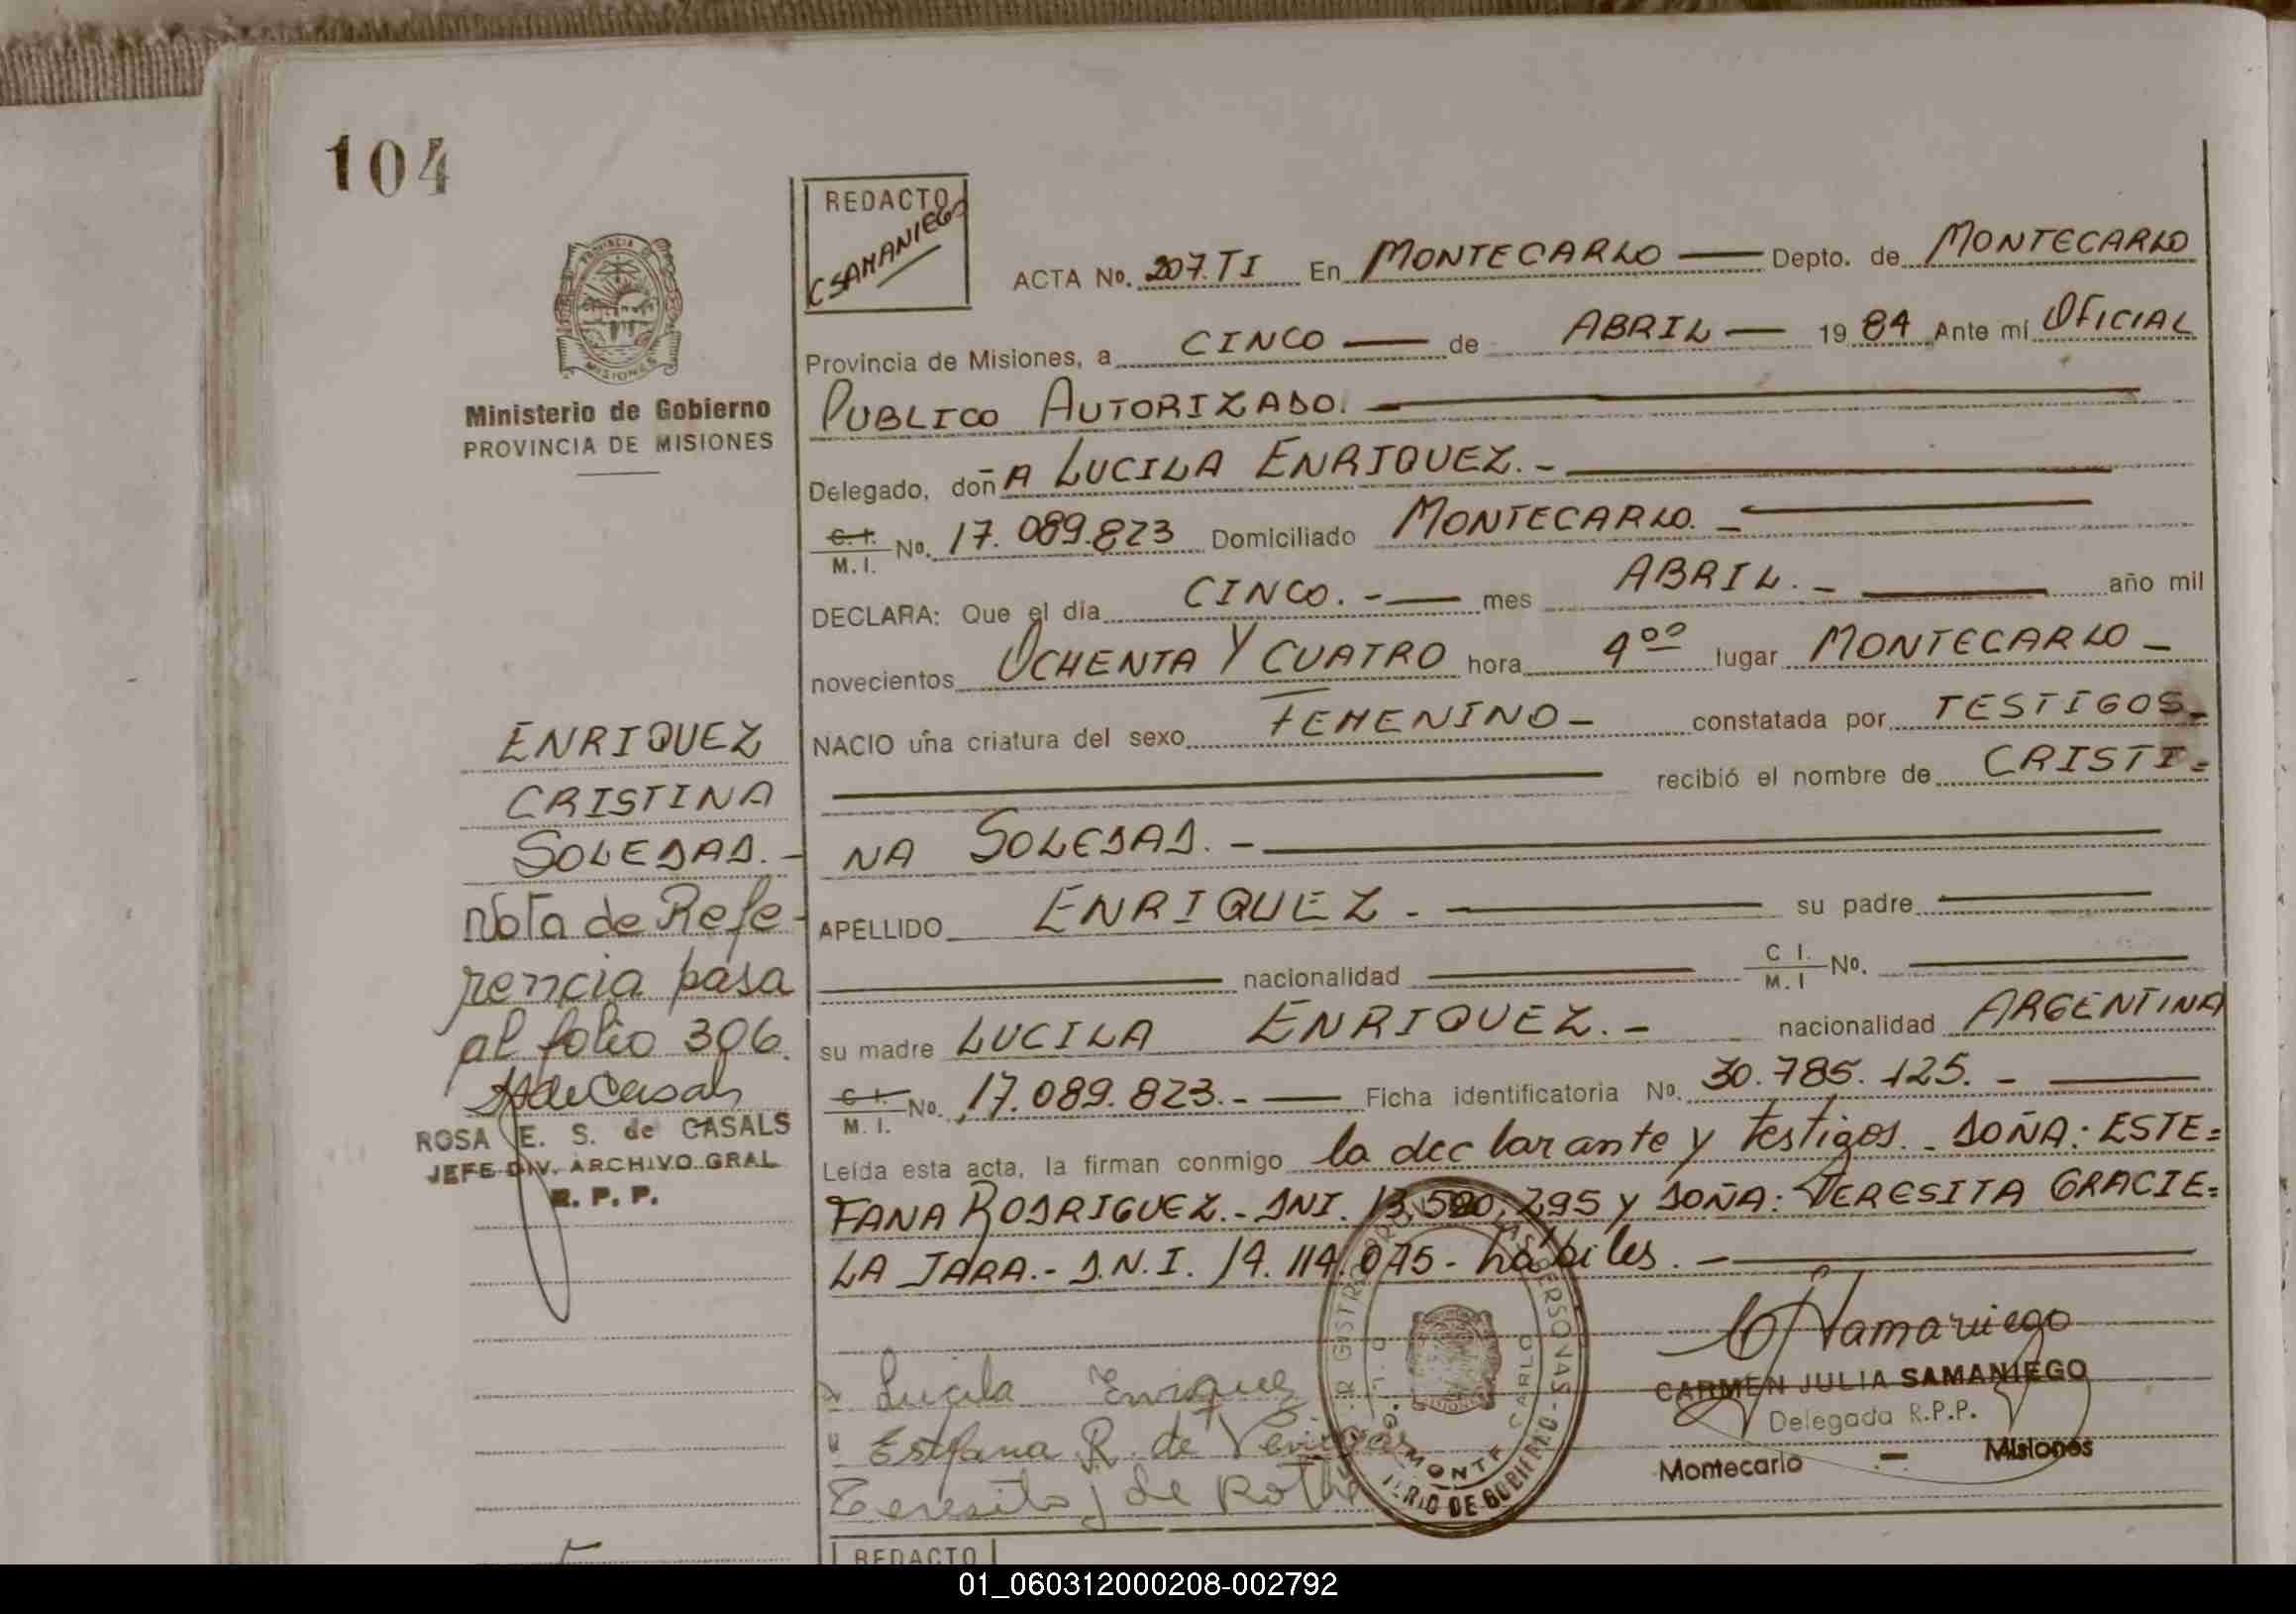 104
PROVINCIA
MISIONES
Ministerio de Gobierno
PROVINCIA DE MISIONES
REDACTO
CSAMANIEGO
ACTA No. 207.TI En MONTECARLO — Depto. de MONTECARLO
Provincia de Misiones, a CINCO — de ABRIL — 19 84 Ante mí OFICIAL
PUBLICO AUTORIZADO. —
Delegado, doñA LUCILA ENRIQUEZ. - —
C. I. M. I. No. 17.089.823 Domiciliado MONTECARLO. - —
DECLARA: Que el día CINCO. - — mes ABRIL. - — año mil
novecientos OCHENTA Y CUATRO hora 4 00 lugar MONTECARLO -
NACIO una criatura del sexo FEMENINO - constatada por TESTIGOS -
— recibió el nombre de CRISTI =
NA SOLEDAD. - —
APELLIDO ENRIQUEZ. - — su padre —
— nacionalidad — C I. M. I No. —
su madre LUCILA ENRIQUEZ. - nacionalidad ARGENTINA
C. I. M. I. No. 17.089.823. - — Ficha identificatoria No. 30.785.125. - —
Leída esta acta, la firman conmigo la declarante y testigos. - DOÑA: ESTE=
FANA RODRIGUEZ. - DNI. 13.590.295 y DOÑA: TERESITA GRACIE=
LA JARA. - D.N.I. 14.114.045 - hábiles. - —
ENRIQUEZ
CRISTINA
SOLEDAD. -
Nota de Refe-
rencia pasa
al folio 306.
ROSA E. S. de CASALS
JEFE DIV. ARCHIVO GRAL
R. P. P.
Lucila Enriquez
Estefana R. de
Teresita J de
CSamaniego
CARMEN JULIA SAMANIEGO
Delegada R.P.P.
Montecarlo - Misiones
REDACTO
01_060312000208-002792